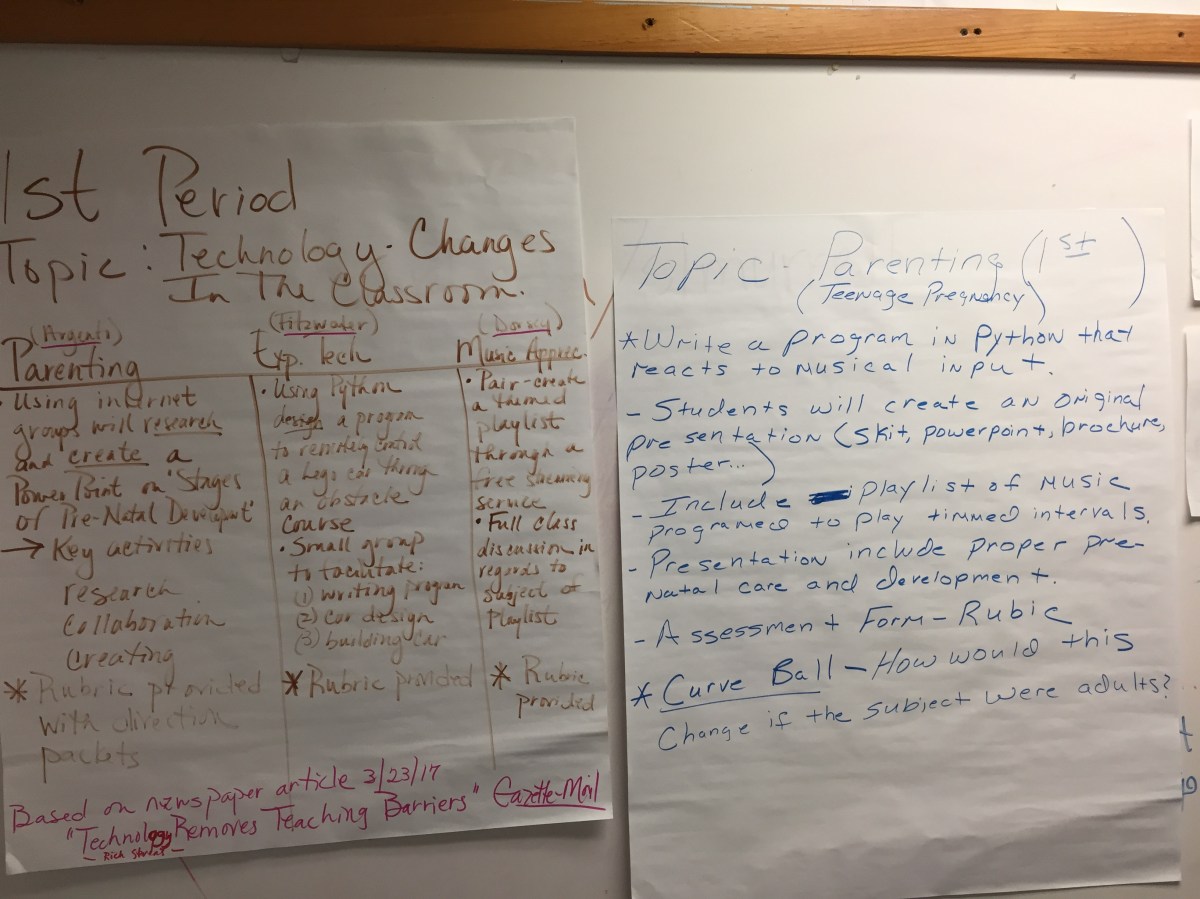 1st Period
Topic: Technology-Changes
In The Classroom.
(Argento)
Parenting
• Using internet
groups will research
and create a
PowerPoint on "Stages
of Pre-Natal Development"
→ Key activities
research
Collaboration
Creating
* Rubric provided
with direction
packets
(Fitzwater)
Exp. Tech
• Using Python
design a program
to remotely control
a Lego car through
an obstacle
Course
• Small group
to facilitate:
(1) writing program
(2) car design
(3) building car
* Rubric provided
(Dorsey)
Music Apprec.
• Pair-create
a themed
playlist
through a
free streaming
service
• Full class
discussion in
regards to
subject of
Playlist
* Rubric
provided
Based on newspaper article 3/23/17
"Technology Removes Teaching Barriers" Gazette-Mail
- Rich
Topic - Parenting (1st)
(Teenage Pregnancy)
* Write a program in Python that
reacts to musical input.
- Students will create an original
presentation (skit, powerpoint, brochure,
poster...)
- Include playlist of music
programed to play timmed intervals.
- Presentation include proper pre-
natal care and development.
- Assessment Form - Rubic
* Curve Ball - How would this
change if the subject were adults?